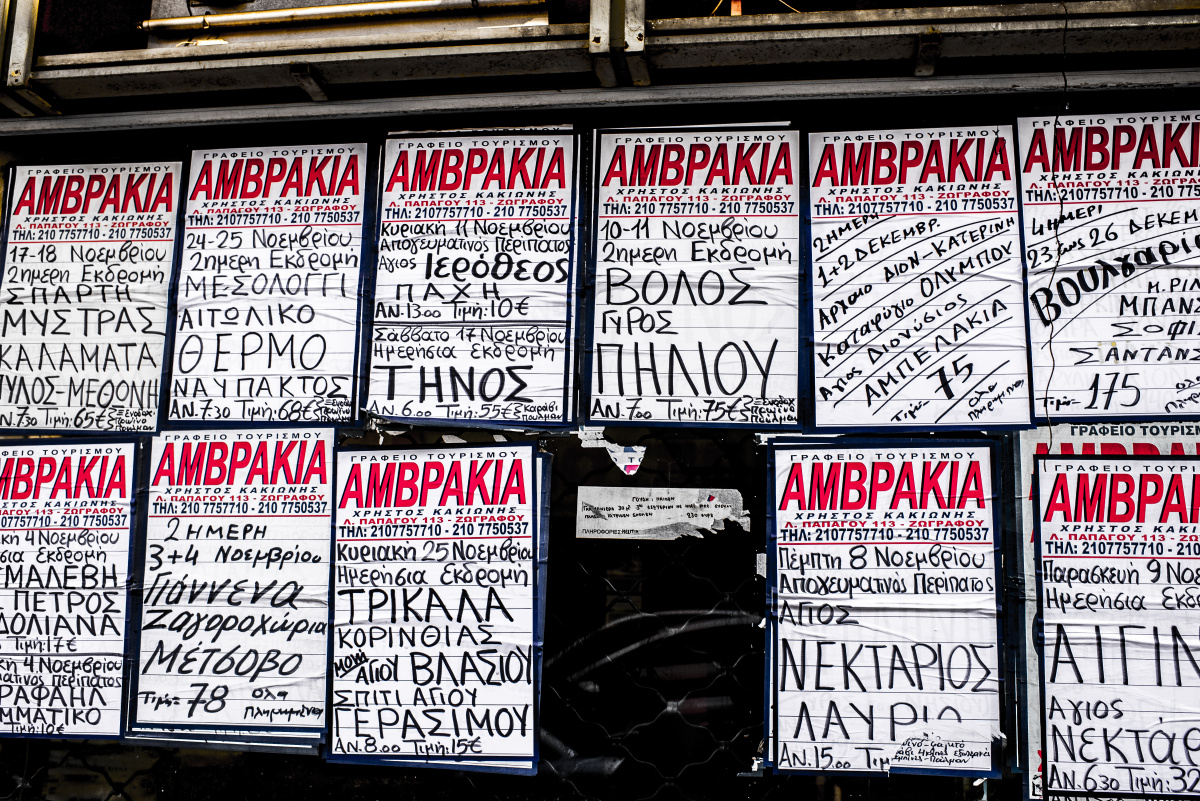 ΓΡΑΦΕΙΟ ΤΟΥΡΙΣΜΟΥ
ΑΜΒΡΑΚΙΑ
ΧΡΗΣΤΟΣ ΚΑΚΙΩΝΗΣ
Λ. ΠΑΠΑΓΟΥ 113 - ΖΩΓΡΑΦΟΥ
ΤΗΛ: 210 7757710 - 210 7750537
17-18 Νοεμβρίου
2ημερη Εκδρομή
ΣΠΑΡΤΗ
ΜΥΣΤΡΑΣ
ΚΑΛΑΜΑΤΑ
ΠΥΛΟΣ-ΜΕΘΟΝΗ
ΑΝ. 7.30 Τιμή: 65€ Ξενοδοχ πρωινο Πουλμαν
ΓΡΑΦΕΙΟ ΤΟΥΡΙΣΜΟΥ
ΑΜΒΡΑΚΙΑ
ΧΡΗΣΤΟΣ ΚΑΚΙΩΝΗΣ
Λ. ΠΑΠΑΓΟΥ 113 - ΖΩΓΡΑΦΟΥ
ΤΗΛ: 210 7757710 - 210 7750537
24-25 Νοεμβρίου
2ημερη Εκδρομή
ΜΕΣΟΛΟΓΓΙ
ΑΙΤΩΛΙΚΟ
ΘΕΡΜΟ
ΝΑΥΠΑΚΤΟΣ
ΑΝ. 7.30 Τιμή: 68€ Ξενοδοχ πρωινο Πουλμαν
ΓΡΑΦΕΙΟ ΤΟΥΡΙΣΜΟΥ
ΑΜΒΡΑΚΙΑ
ΧΡΗΣΤΟΣ ΚΑΚΙΩΝΗΣ
Λ. ΠΑΠΑΓΟΥ 113 - ΖΩΓΡΑΦΟΥ
ΤΗΛ: 2107757710 - 210 7750537
Κυριακή 11 Νοεμβρίου
Απογευματινός Περίπατος
Αγιος Ιερόθεος
ΠΑΧΗ
ΑΝ. 13.00 Τιμή: 10€
Σάββατο 17 Νοεμβρίου
Ημερήσια Εκδρομή
ΤΗΝΟΣ
ΑΝ. 6.00 Τιμή: 55€ Καράβι Πουλμαν
ΓΡΑΦΕΙΟ ΤΟΥΡΙΣΜΟΥ
ΑΜΒΡΑΚΙΑ
ΧΡΗΣΤΟΣ ΚΑΚΙΩΝΗΣ
Λ. ΠΑΠΑΓΟΥ 113 - ΖΩΓΡΑΦΟΥ
ΤΗΛ: 210 7757710 - 210 7750537
10-11 Νοεμβρίου
2ημερη Εκδρομή
ΒΟΛΟΣ
ΓΥΡΟΣ
ΠΗΛΙΟΥ
ΑΝ. 7.00 Τιμή: 75€ Ξενοδοχ πρωινο Πουλμαν
ΓΡΑΦΕΙΟ ΤΟΥΡΙΣΜΟΥ
ΑΜΒΡΑΚΙΑ
ΧΡΗΣΤΟΣ ΚΑΚΙΩΝΗΣ
Λ. ΠΑΠΑΓΟΥ 113 - ΖΩΓΡΑΦΟΥ
ΤΗΛ: 2107757710 - 210 7750537
2ΗΜΕΡΗ
1+2 ΔΕΚΕΜΒΡ.
Αρχαιο ΔΙΟΝ-ΚΑΤΕΡΙΝΗ
Καταφύγιο ΟΛΥΜΠΟΥ
Αγιος Διονύσιος
ΑΜΠΕΛΑΚΙΑ
Τιμή= 75 ολα πληρωμενα
ΓΡΑΦΕΙΟ ΤΟΥΡΙΣΜ
ΑΜΒΡΑΚΙ
ΧΡΗΣΤΟΣ ΚΑΚΙΩΝΗΣ
Λ. ΠΑΠΑΓΟΥ 113 - ΖΩΓΡΑΦΟ
ΤΗΛ: 2107757710 - 210 775053
4ΗΜΕΡΙ
23 εως 26 ΔΕΚΕΜ
ΒΟΥΛΓΑΡΙ
Μ. ΡΙΛ
ΜΠΑΝΣ
ΣΟΦΙ
ΣΑΝΤΑΝΣ
Τιμ= 175 ολα
ΑΜΒΡΑΚΙΑ
ΧΡΗΣΤΟΣ ΚΑΚΙΩΝΗΣ
ΠΑΠΑΓΟΥ 113 - ΖΩΓΡΑΦΟΥ
7757710 - 210 7750537
κή 4 Νοεμβρίου
σια Εκδρομή
ΜΑΛΕΒΗ
ΠΕΤΡΟΣ
ΔΟΛΙΑΝΑ
Τιμή: 17€
κή 4 Νοεμβρίου
ματινός Περίπατος
ΡΑΦΑΗΛ
ΜΜΑΤΙΚΟ
Τιμή: 10€
ΓΡΑΦΕΙΟ ΤΟΥΡΙΣΜΟΥ
ΑΜΒΡΑΚΙΑ
ΧΡΗΣΤΟΣ ΚΑΚΙΩΝΗΣ
Λ. ΠΑΠΑΓΟΥ 113 - ΖΩΓΡΑΦΟΥ
ΤΗΛ: 210 7757710 - 210 7750537
2 ΗΜΕΡΗ
3+4 Νοεμβρίου
Γιάννενα
Ζαγοροχώρια
Μέτσοβο
Τιμή= 78 ολα πληρωμενα
ΓΡΑΦΕΙΟ ΤΟΥΡΙΣΜΟΥ
ΑΜΒΡΑΚΙΑ
ΧΡΗΣΤΟΣ ΚΑΚΙΩΝΗΣ
Λ. ΠΑΠΑΓΟΥ 113 - ΖΩΓΡΑΦΟΥ
ΤΗΛ: 210 7757710 - 210 7750537
Κυριακή 25 Νοεμβρίου
Ημερήσια Εκδρομή
ΤΡΙΚΑΛΑ
ΚΟΡΙΝΘΙΑΣ
Μονή ΑΓΙΟΥ ΒΛΑΣΙΟΥ
ΣΠΙΤΙ ΑΓΙΟΥ
ΓΕΡΑΣΙΜΟΥ
ΑΝ. 8.00 Τιμή: 15€
ΓΡΑΦΕΙΟ ΤΟΥΡΙΣΜΟΥ
ΑΜΒΡΑΚΙΑ
ΧΡΗΣΤΟΣ ΚΑΚΙΩΝΗΣ
Λ. ΠΑΠΑΓΟΥ 113 - ΖΩΓΡΑΦΟΥ
ΤΗΛ: 210 7757710 - 210 7750537
Πέμπτη 8 Νοεμβρίου
Απογευματινός Περίπατος
ΑΓΙΟΣ
ΝΕΚΤΑΡΙΟΣ
ΛΑΥΡΙΟ
ΑΝ. 15.00 Τιμ
ΓΡΑΦΕΙΟ ΤΟΥΡΙΣΜ
ΓΡΑΦΕΙΟ ΤΟΥΡΙΣ
ΑΜΒΡΑΚ
ΧΡΗΣΤΟΣ ΚΑΚΙΩ
Λ. ΠΑΠΑΓΟΥ 113 - ΖΩΓ
ΤΗΛ: 2107757710 - 210
Παρασκευή 9 Νοε
Ημερήσια Εκδ
ΑΙΓΙΝ
Αγιος
ΝΕΚΤΑΡ
ΑΝ. 6.30 Τιμή: 32